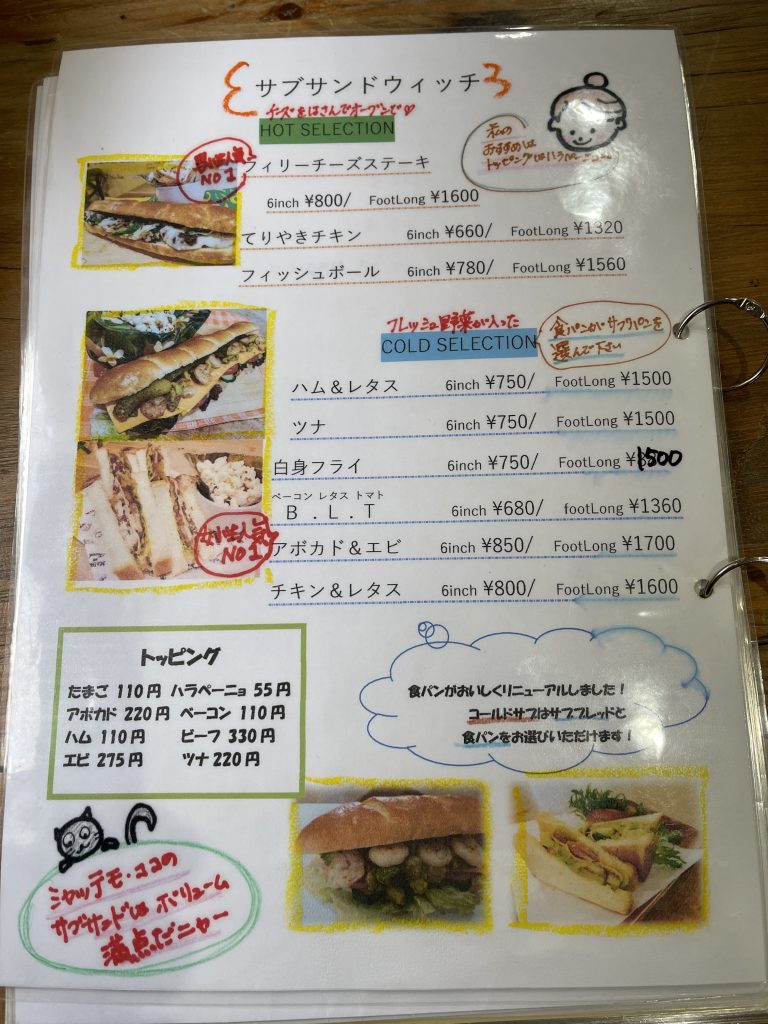 サブサンドウィッチ
チーズをはさんでオーブンで♡
HOT SELECTION
私の
おすすめは
トッピングはハラペーニョ
男性人気
NO1
フィリーチーズステーキ
6inch ¥800/ FootLong ¥1600
てりやきチキン 6inch ¥660/ FootLong ¥1320
フィッシュボール 6inch ¥780/ FootLong ¥1560
フレッシュ野菜が入った
COLD SELECTION
食パンかサブパンを
選んで下さい
ハム＆レタス 6inch ¥750/ FootLong ¥1500
ツナ 6inch ¥750/ FootLong ¥1500
白身フライ 6inch ¥750/ FootLong ¥1500
ベーコン レタス トマト
B.L.T 6inch ¥680/ footLong ¥1360
女性人気
NO1
アボカド＆エビ 6inch ¥850/ FootLong ¥1700
チキン＆レタス 6inch ¥800/ FootLong ¥1600
トッピング
たまご 110円 ハラペーニョ 55円
アボカド 220円 ベーコン 110円
ハム 110円 ビーフ 330円
エビ 275円 ツナ 220円
食パンがおいしくリニューアルしました！
コールドサブはサブブレッドと
食パンをお選びいただけます！
シャッテモ・ココの
サブサンドは ボリューム
満点だニャー